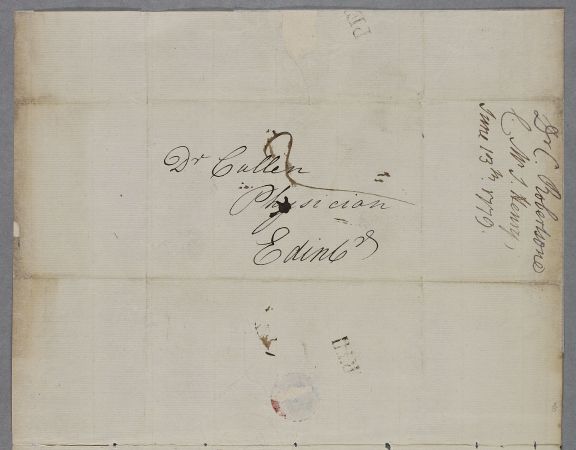 Dr Cullen
Physician
Edinbr
2
Dr C. Robertson
C. Mr J. Henry,
June 13th 1779.